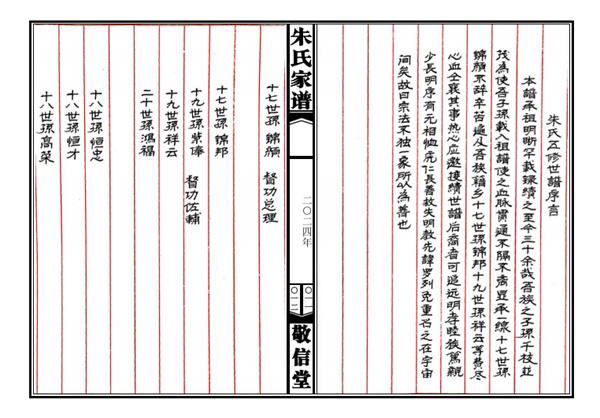 朱氏五修世譜序言
本譜承祖明晰罕載錄績之至今三十余哉吾族之子孫千枝並
茂為使吾子孫載入祖譜使之血脉貫通不隔不斋豈承一線十七世孫
錦顏不辞辛苦遍及吾族籍乡十七世孫錦邦十九世孫祥云等費尽
心血仝襄其事热心应邀接績世譜后裔者可追远明孝睦族篤親
少長明序有元相恤虎仁長善故失明教先諱罗列免重吕之在宇宙
间矣故曰宗法不独一家所以為善也
朱氏家谱
二〇二四年
〇一一
〇一二
敬信堂
十七世孫 錦顏 督功总理
十七世孫 錦邦
十九世孫 業俸 督功佐輔
十九世孫 祥云
二十世孫 鴻福
十八世孫 恒忠
十八世孫 恒才
十八世孫 高菜